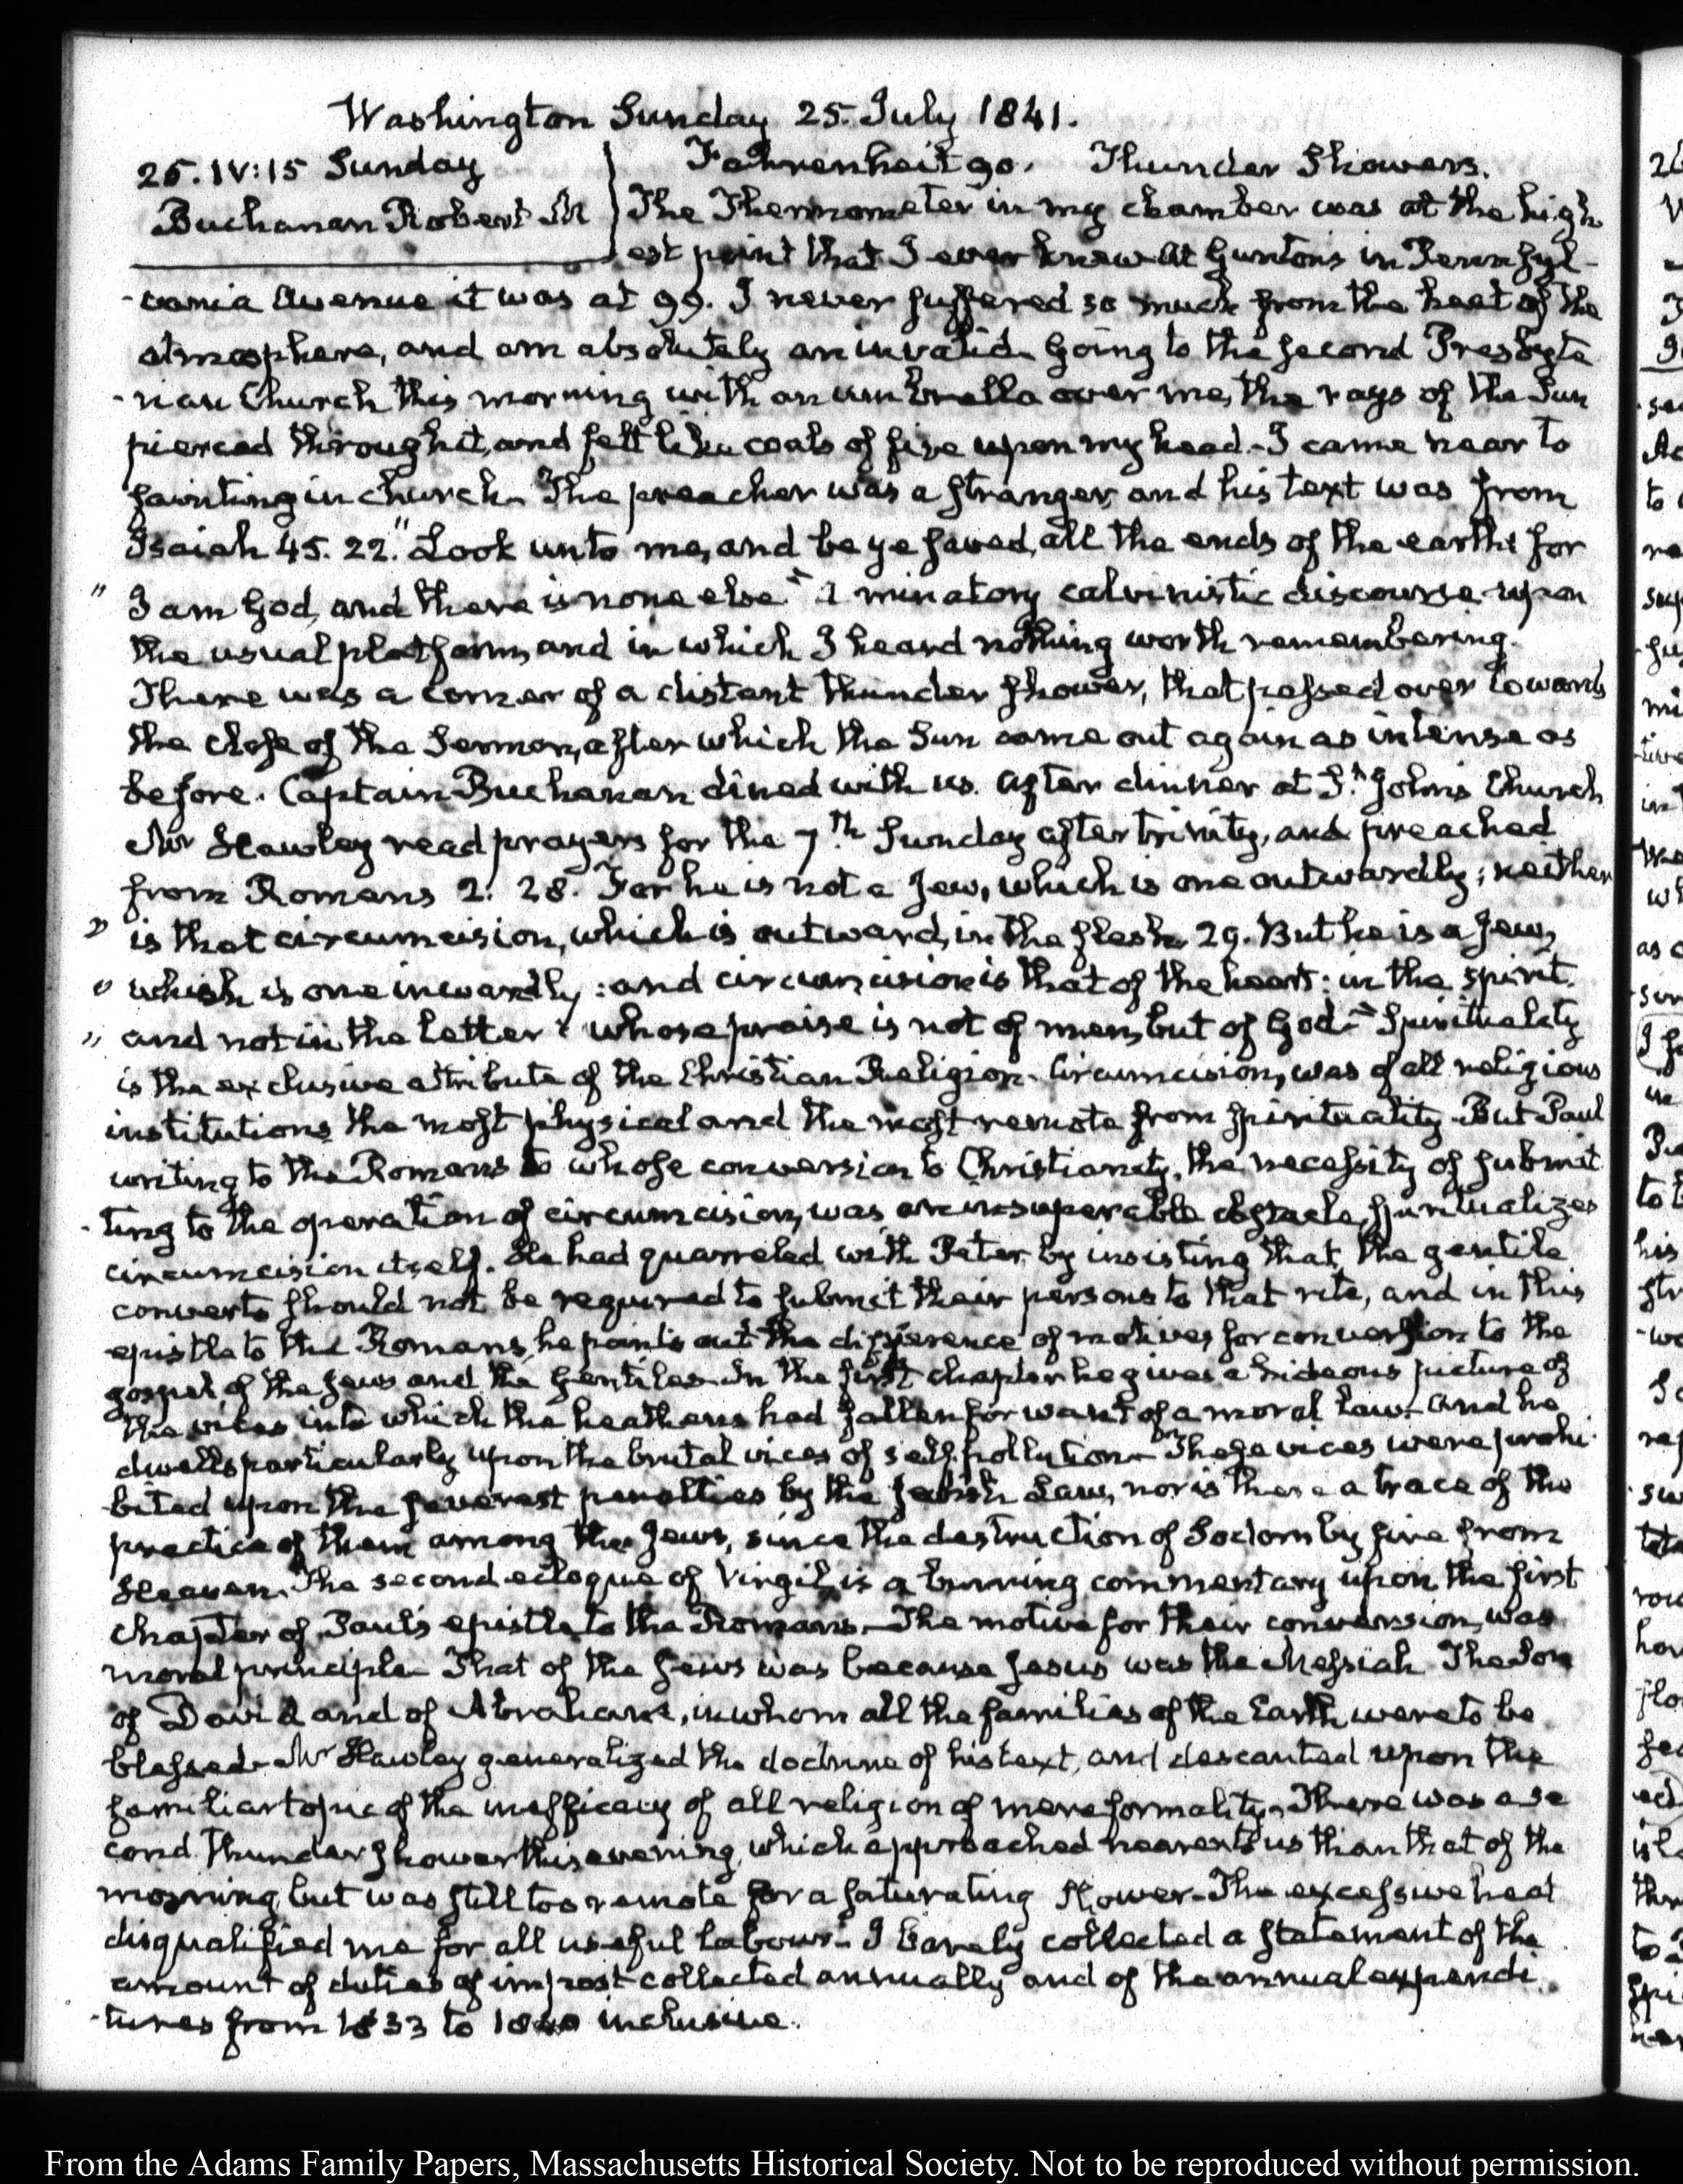 Washington Sunday 25. July 1841.
25. IV:15 Sunday
Buchanan Robert M
Fahrenheit 90. Thunder Showers.
The Thermometer in my chamber was at the high
est point that I ever knew At Gunton's in Pennsyl-
-vania Avenue it was at 99. I never suffered so much from the heat of the
atmosphere, and am absolutely an invalid. Going to the second Presbyte
-rian Church this morning with an umbrella over me, the rays of the Sun
pierced through it, and felt like coals of fire upon my head. I came near to
fainting in church. The preacher was a stranger, and his text was from
Isaiah 45. 22. "Look unto me, and be ye saved, all the ends of the earth: for
" I am God, and there is none else" A minatory calvinistic discourse upon
the usual platform, and in which I heard nothing worth remembering.
There was a corner of a distant thunder shower, that passed over towards
the close of the Sermon, after which the Sun came out again as intense as
before. Captain Buchanan dined with us. After dinner at St. John's Church
Mr Hawley read prayers for the 7th Sunday after trinity, and preached
from Romans 2. 28. "For he is not a Jew, which is one outwardly; neither
" is that circumcision, which is outward, in the flesh. 29. But he is a Jew,
" which is one inwardly: and circumcision is that of the heart: in the spirit
" and not in the letter: whose praise is not of men, but of God." Spirituality
is the exclusive attribute of the Christian Religion. Circumcision, was of all religious
institutions the most physical and the most remote from spirituality. But Paul
writing to the Romans to whose conversion to Christianity, the necessity of submit
-ting to the operation of circumcision, was an insuperable obstacle, spiritualizes
circumcision itself. He had quarreled with Peter by insisting that the gentile
converts should not be required to submit their persons to that rite, and in this
epistle to the Romans, he points out the difference of motives for conversion to the
gospel of the Jews and the Gentiles. In the first chapter he gives a hideous picture of
the vices into which the heathens had fallen for want of a moral law. And he
dwells particularly upon the brutal vices of self-pollution. These vices were prohi-
bited upon the severest penalties by the Jewish Law, nor is there a trace of the
practice of them among the Jews, since the destruction of Sodom by fire from
Heaven. The second eclogue of Virgil, is a burning commentary upon the first
chapter of Paul's epistle to the Romans. The motive for their conversion, was
moral principle. That of the Jews was because Jesus was the Messiah. The Son
of David and of Abraham, in whom all the families of the Earth were to be
blessed. Mr Hawley generalized the doctrine of his text, and descanted upon the
familiar topic of the inefficacy of all religion of mere formality. There was a se
cond Thunder shower this evening, which approached nearer to us than that of the
morning, but was still too remote for a saturating shower. The excessive heat
disqualified me for all useful labour. I barely collected a statement of the
amount of duties of impost collected annually and of the annual expendi-
-tures from 1833 to 1840 inclusive.
From the Adams Family Papers, Massachusetts Historical Society. Not to be reproduced without permission.